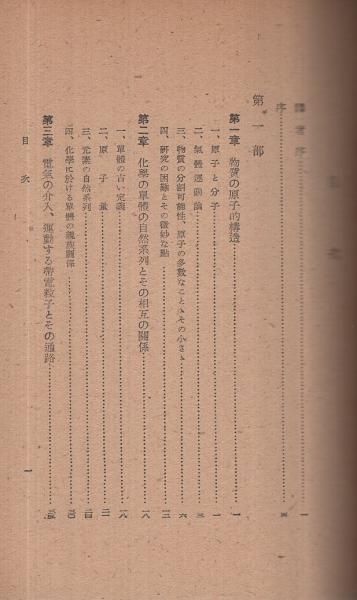 序
第一部
第一章 物質の原子的構造
一、原子と分子
二、氣體運動論
三、物質の分割可能性、原子の多數なことゝその小さゝ
四、研究の困難とその微妙な點
第二章 化學の單體の自然系列とその相互の關係
一、單體の古い定義 一八
二、原子量
三、元素の自然系列
四、化學に於ける單體の親族關係
第三章 電氣の介入、運動する帶電粒子とその通路
目次
一